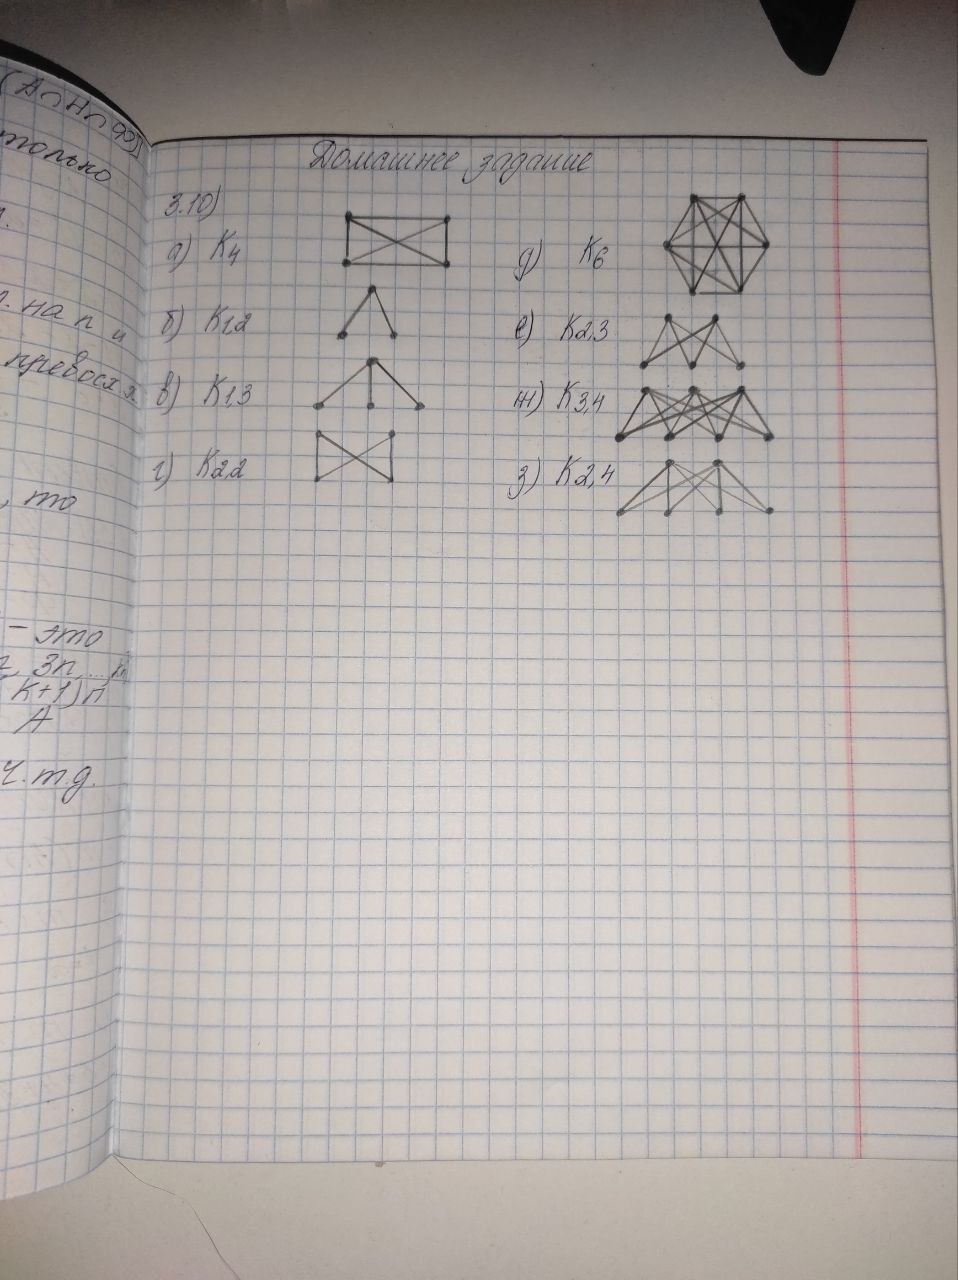 (А∩Н∩Ф)]
только
. на n и
превосх.
, то
- это
, 3n, ... kn
K+1)n
А
ч.т.д.
Домашнее задание
3.10)
а) K4
б) K1,2
в) K1,3
г) K2,2
д) K6
е) K2,3
ж) K3,4
з) K2,4